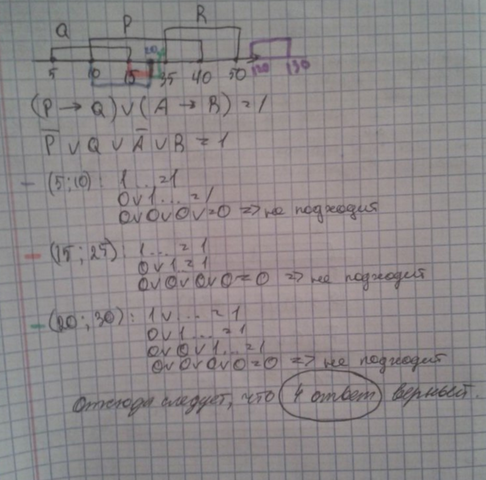 Q P R
5 10 15 20 35 40 50 120 130
(P → Q) ∨ (A → R) = 1
P̅ ∨ Q ∨ A̅ ∨ R = 1
– (5;10): 1 ... = 1
0∨1 ... = 1
0∨0∨0∨=0 => не подходит
– (15; 25): 1 ... = 1
0∨1 = 1
0∨0∨0∨0=0 => не подходит
– (20; 30): 1∨ ... = 1
0∨1 ... = 1
0∨0∨1 ... = 1
0∨0∨0∨0=0 => не подходит
Отсюда следует, что 4 ответ верный.